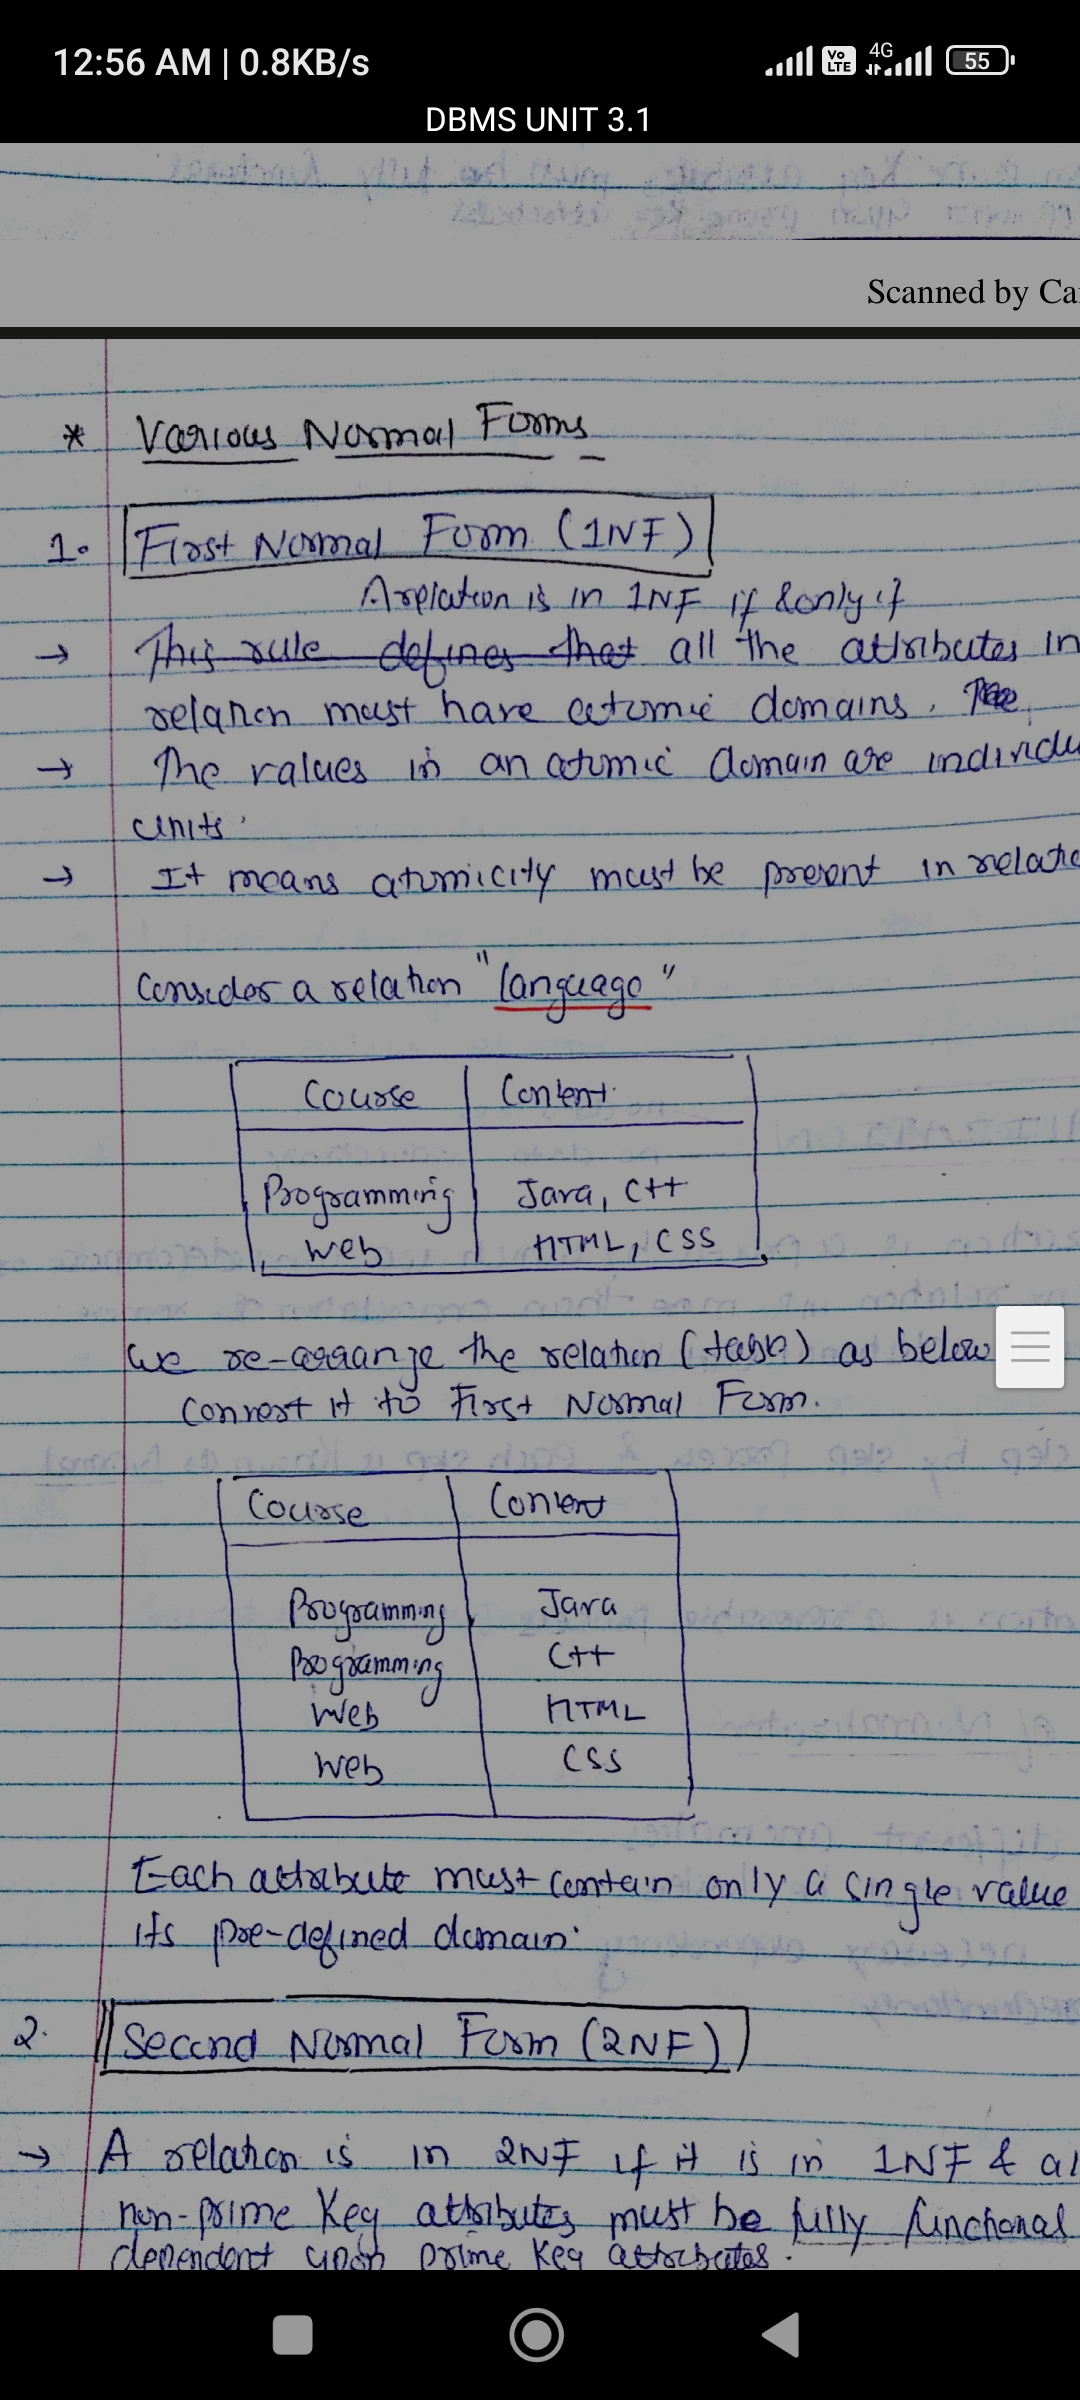 12:56 AM | 0.8KB/s
Vo LTE 4G 55
DBMS UNIT 3.1
Scanned by Ca
* Various Normal Forms
1. First Normal Form (1NF)
A relation is in 1NF if & only if
→ This rule defines that all the attributes in
relation must have atomic domains. The
→ The values in an atomic domain are individu
units.
→ It means atomicity must be present in relatio
Consider a relation "Language"
Course Content
Programming Java, C++
Web HTML, CSS
We re-arrange the relation (table) as below
Convert it to First Normal Form.
Course Content
Programming Java
Programming C++
Web HTML
Web CSS
Each attribute must contain only a single value
its pre-defined domain.
2. Second Normal Form (2NF)
→ A relation is in 2NF if it is in 1NF & al
non-prime Key attributes must be fully functional
dependent upon prime key attributes.